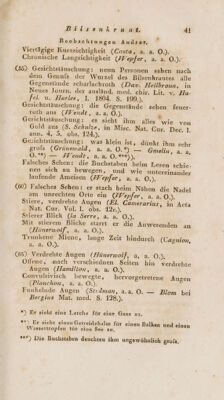 Bilsenkraut. 41
Beobachtungen Andrer.
Viertägige Kurzsichtigkeit (Costa, a. a. O.).
Chronische Langsichtigkeit (Wepfer, a. a. O.).
(55) Gesichtstäuschung: neun Personen sahen nach
dem Genuſs der Wurzel des Bilsenkrautes alle
Gegenstände scharlachroth (Dav. Heilbronn, in
Neues Journ. der ausländ. med. chir. Lit. v. Hu-
fel. u. Harles, I. 1804. S. 199.).
Gesichtstäuschung: die Gegenstände sehen feuer-
roth aus (Wendt, a. a. O.).
Gesichtstäuschung: es sieht ihm alles wie von
Gold aus (S. Schulze, in Misc. Nat. Cur. Dec. I.
ann. 4, 5. obs. 124.).
Gesichtstäuschung: was klein ist, dünkt ihm sehr
groſs (Grünewald, a. a. O.*) — Gmelin, a. a.
O.**) — Wendt, a. a. O.***)).
Falsches Sehen: die Buchstaben beim Lesen schie-
nen sich zu bewegen, und wie untereinander
laufende Ameisen (Wepfer, a. a. O.).
(60) Falsches Sehen: er stach beim Nähen die Nadel
am unrechten Orte ein (Wepfer, a. a. O.).
Stiere, verdrehte Augen (El. Camerarius, in Acta
Nat. Cur. Vol. I. obs. 12.).
Stierer Blick (la Serre, a. a. O.).
Mit stierem Blicke starrt er die Anwesenden an
(Hünerwolf, a. a. O.).
Trunkene Miene, lange Zeit hindurch (Cagnion,
a. a. O.).
(65) Verdrehete Augen (Hünerwolf, a. a. O.).
Offene, nach verschiednen Seiten hin verdrehte
Augen (Hamilton, a. a. O.).
Convulsivisch bewegte, hervorgetretene Augen
(Planchon, a. a. O.).
Funkelnde Augen (Stedman, a. a. O. — Blom bei
Bergius Mat. med. S. 128.).
*) Er sieht eine Lerche für eine Gans an.
**) Er sieht einen Getreidehalm für einen Balken und einen
Wassertropfen für einen See an.
***) Die Buchstaben deuchten ihm ungewöhnlich groſs.